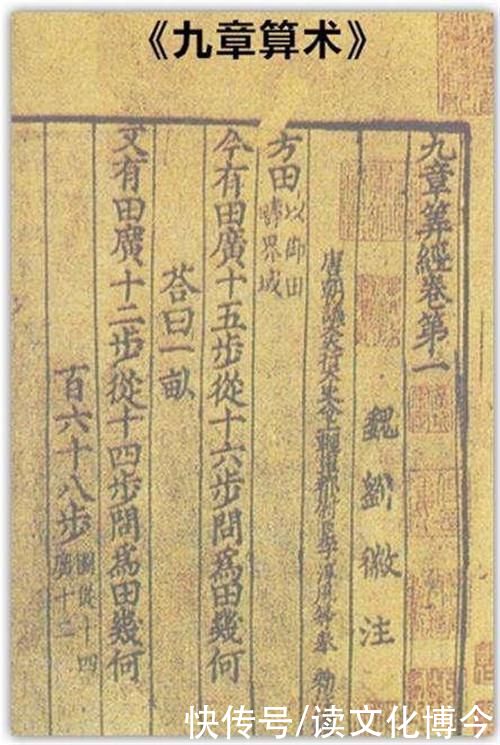 《九章算术》
九章筭經卷第一
魏劉徽注
唐朝議大夫行太史令上輕車都尉臣李淳風等奉 勑
方田以御田
疇界域
今有田廣十五步從十六步問爲田幾何
荅曰一畝
又有田廣十二步從十四步問爲田幾何
百六十八步圖從十四
廣十二
快传号/读文化博今